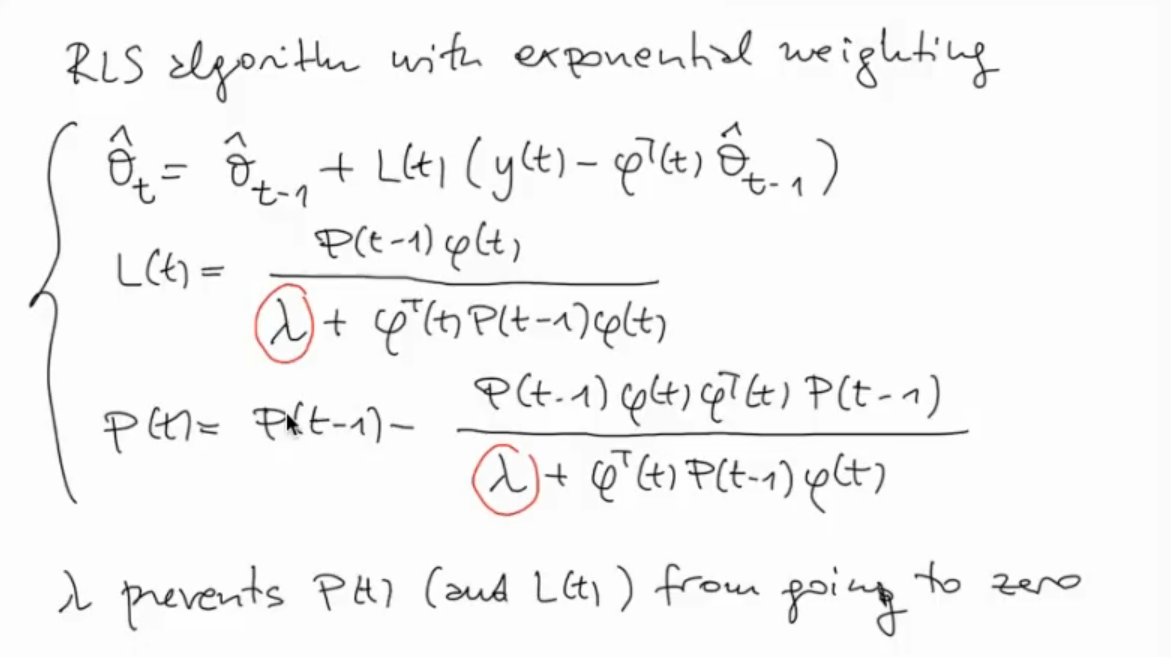 RLS algorithm with exponential weighting
θ̂_t = θ̂_{t-1} + L(t) ( y(t) - φᵀ(t) θ̂_{t-1} )
L(t) = P(t-1) φ(t) / ( λ + φᵀ(t) P(t-1) φ(t) )
P(t) = P(t-1) - P(t-1) φ(t) φᵀ(t) P(t-1) / ( λ + φᵀ(t) P(t-1) φ(t) )
λ prevents P(t) (and L(t) ) from going to zero